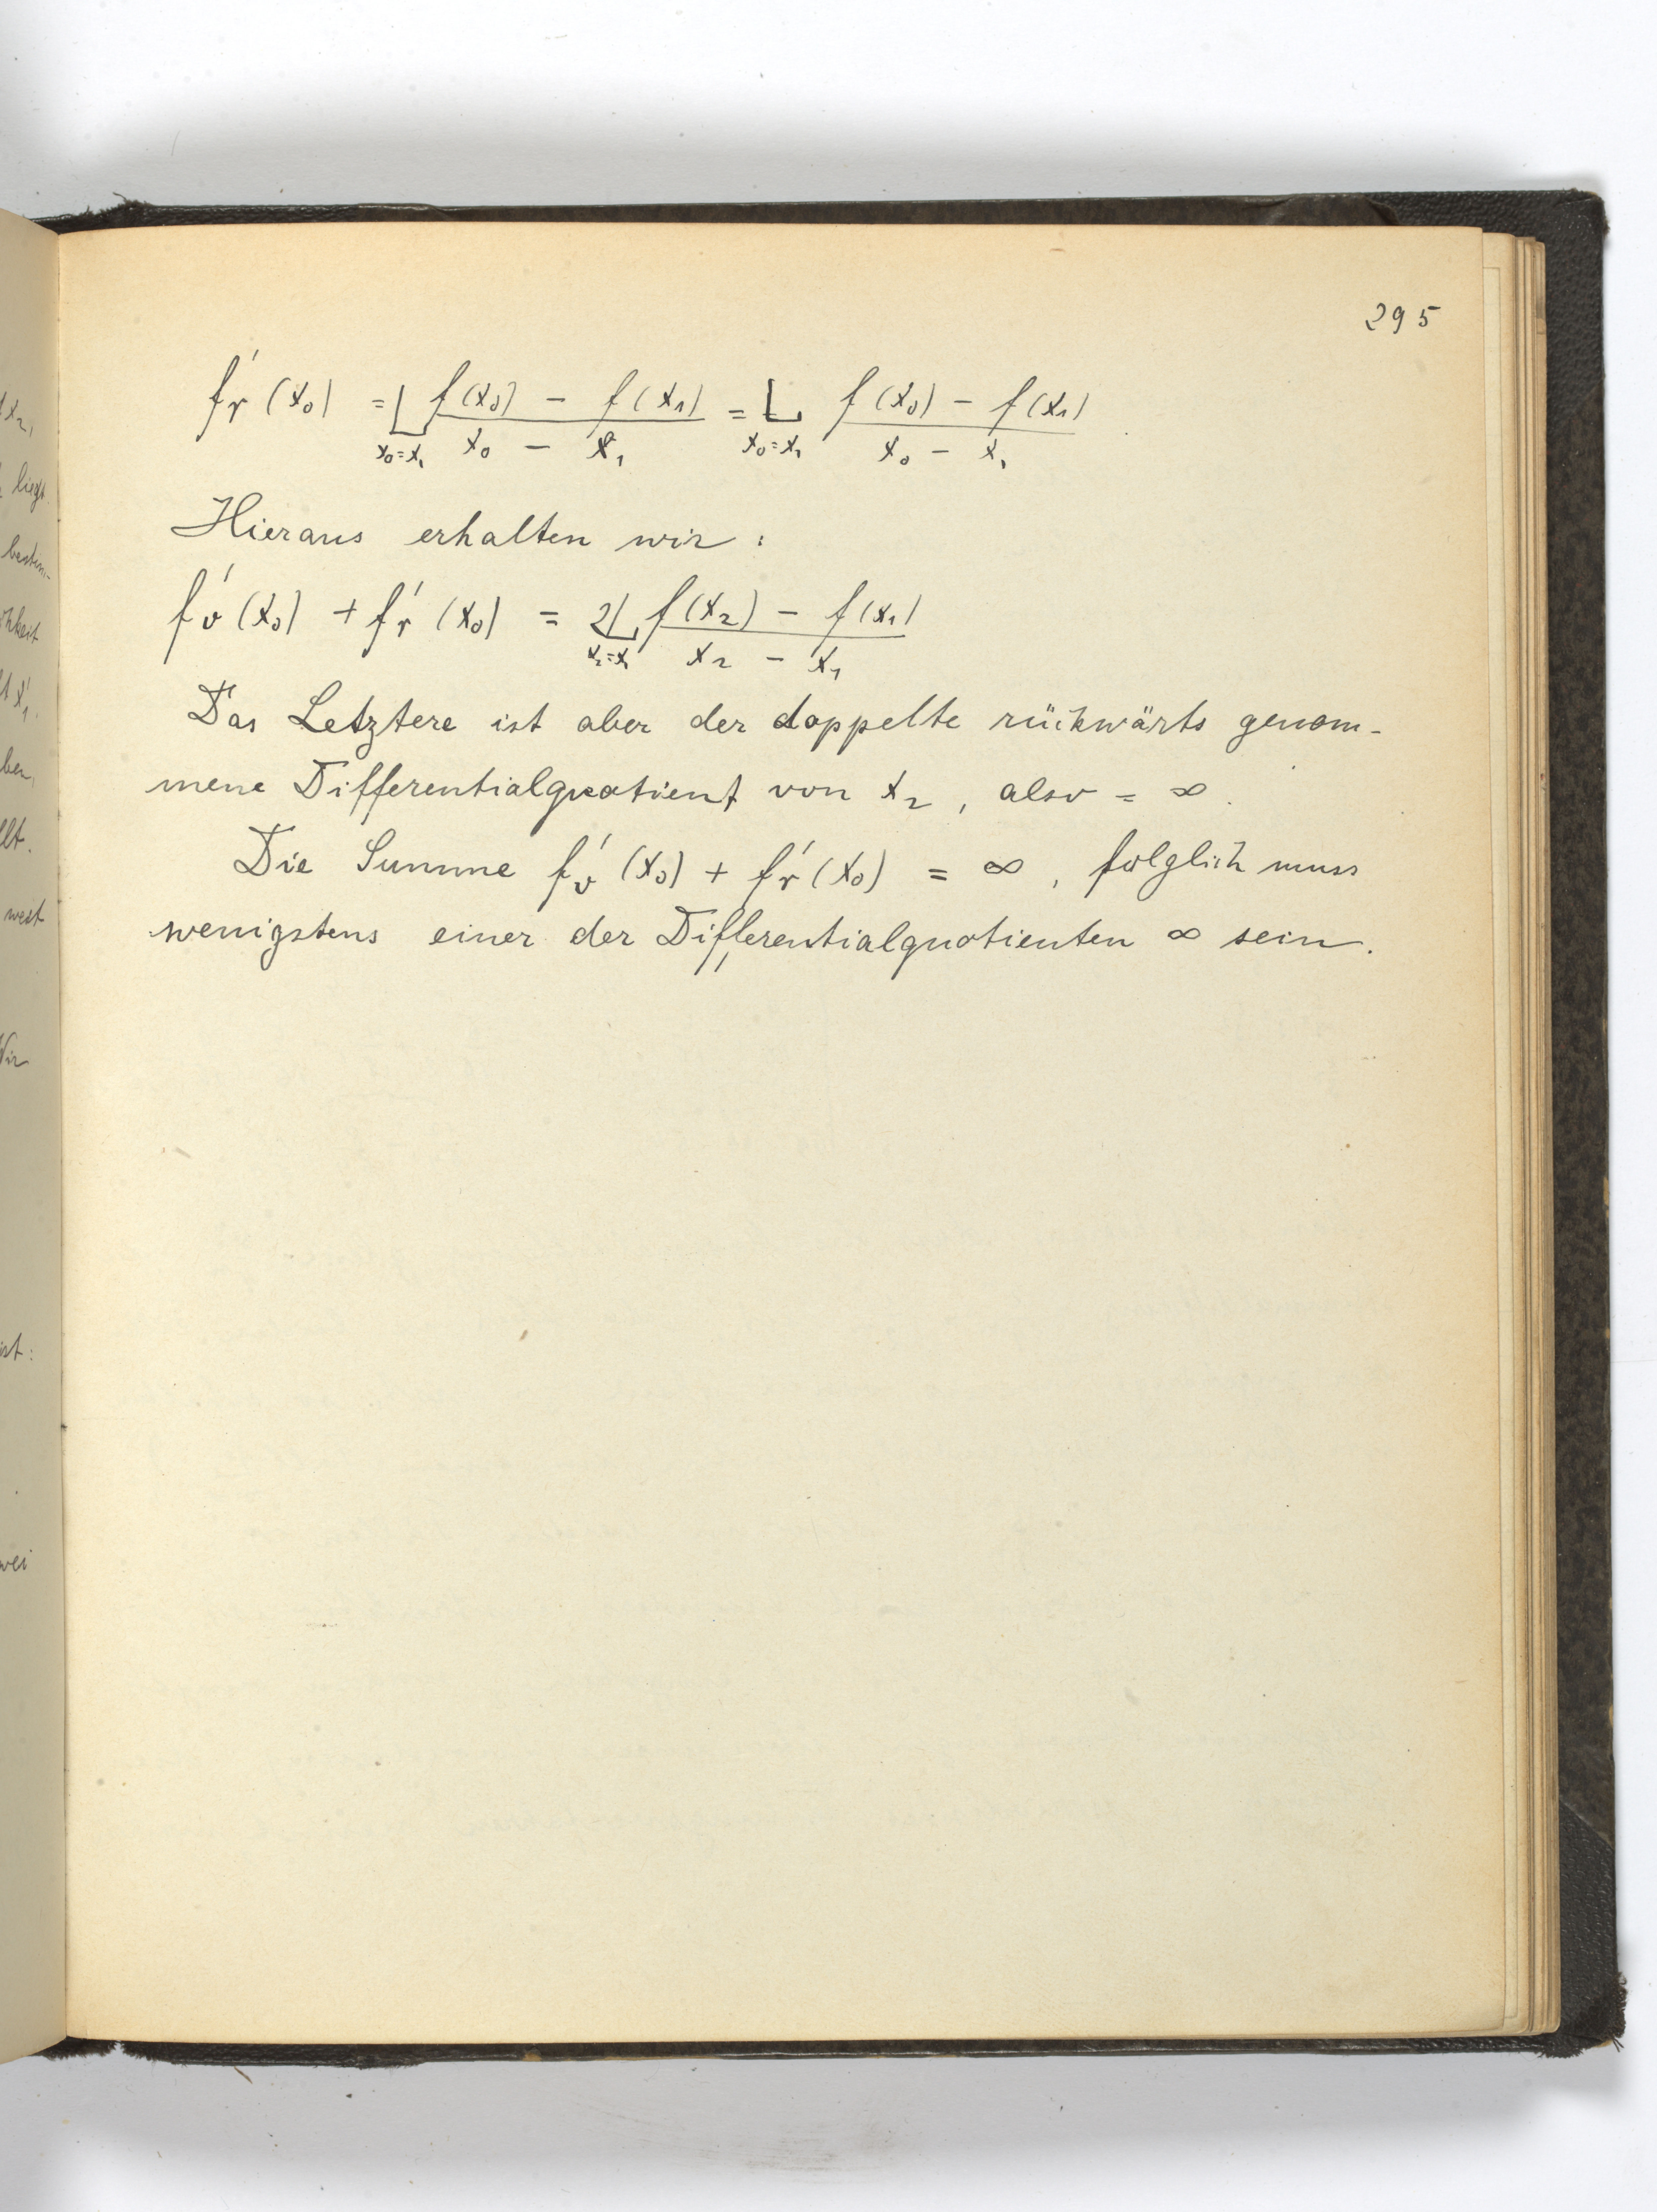 295
f'r (x0) = L f(x0) - f(x1) = L f(x0) - f(x1)
x0=x1 x0 - x1 x0=x1 x0 - x1
Hieraus erhalten wir :
f'v (x0) + f'r (x0) = 2L f(x2) - f(x1)
x2=x1 x2 - x1
Das Letztere ist aber der doppelte rückwärts genom-
mene Differentialquotient von x2, also = ∞.
Die Summe f'v (x0) + f'r (x0) = ∞, folglich muss
wenigstens einer der Differentialquotienten ∞ sein.
liegt
west
Wir
ist: